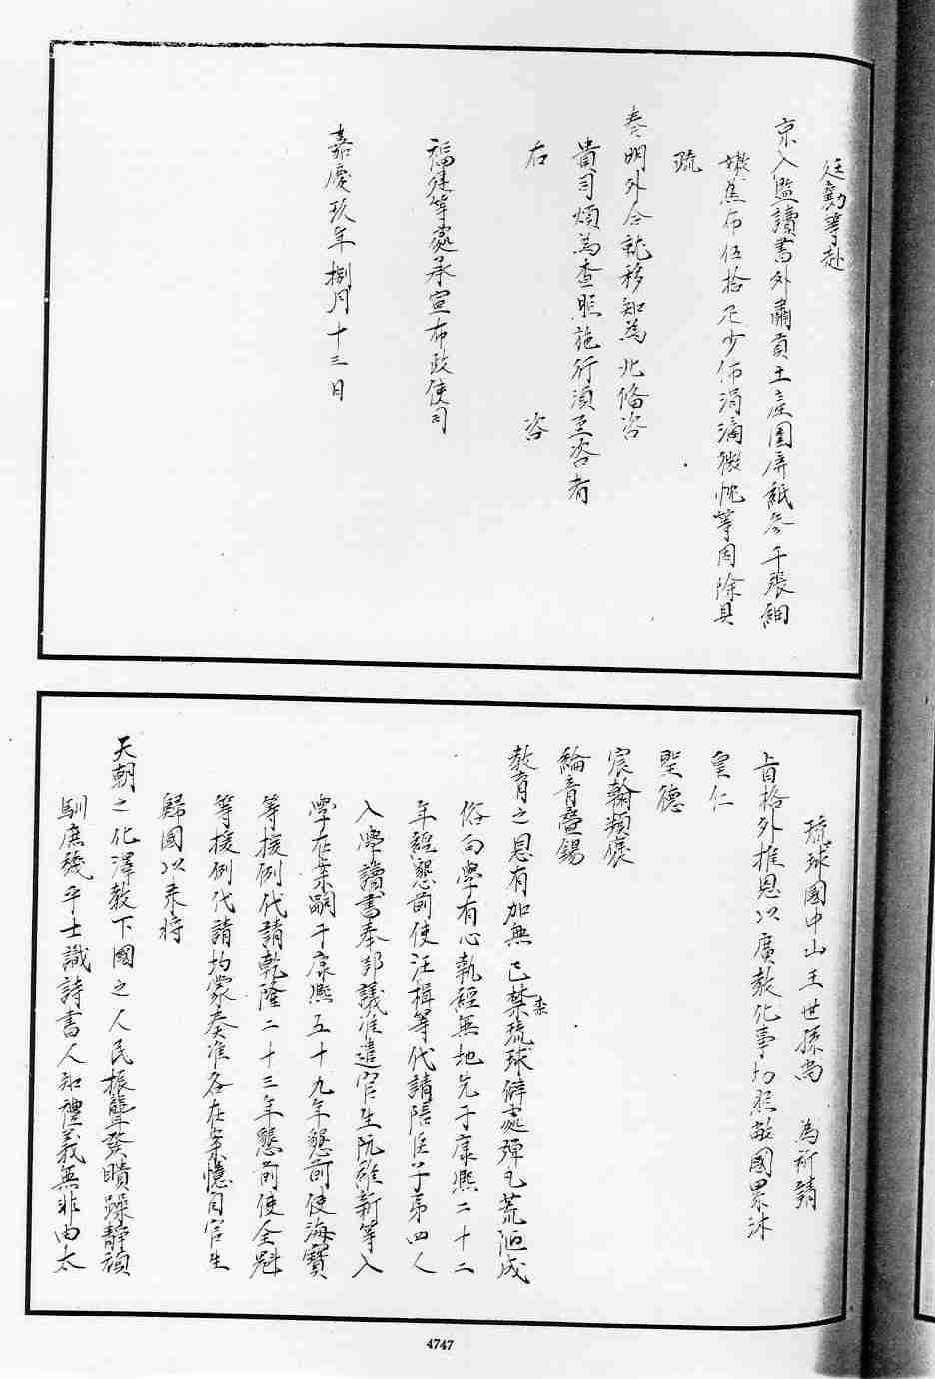 廷勷等赴
京入監讀書外肅貢土產圍屏紙叁千張細
嫩蕉布伍拾疋少佈涓滴微忱等因除具
疏
奏明外合就移知為此備咨
貴司煩為查照施行須至咨者
右 咨
福建等處承宣布政使司
嘉慶玖年捌月十三日
琉球國中山王世孫尚 為祈請
旨格外推恩以廣敎化事切照敝國累沐
皇仁
聖德
宸翰頻褒
綸音疊錫
敎育之恩有加無已慭琉球僻處彈丸荒陋成
俗向學有心執經無地先于康熙二十二
年經懇前使汪楫等代請陪臣子弟四人
入學讀書奉部議准遣官生阮維新等入
學在案嗣于康熙五十九年懇前使海寶
等援例代請乾隆二十三年懇前使全魁
等援例代請均蒙奏准各在案憶自官生
歸國以來將
天朝之化澤敎下國之人民振聾發聵躁靜頑
馴庶幾乎士識詩書人知禮義無非由太
4747